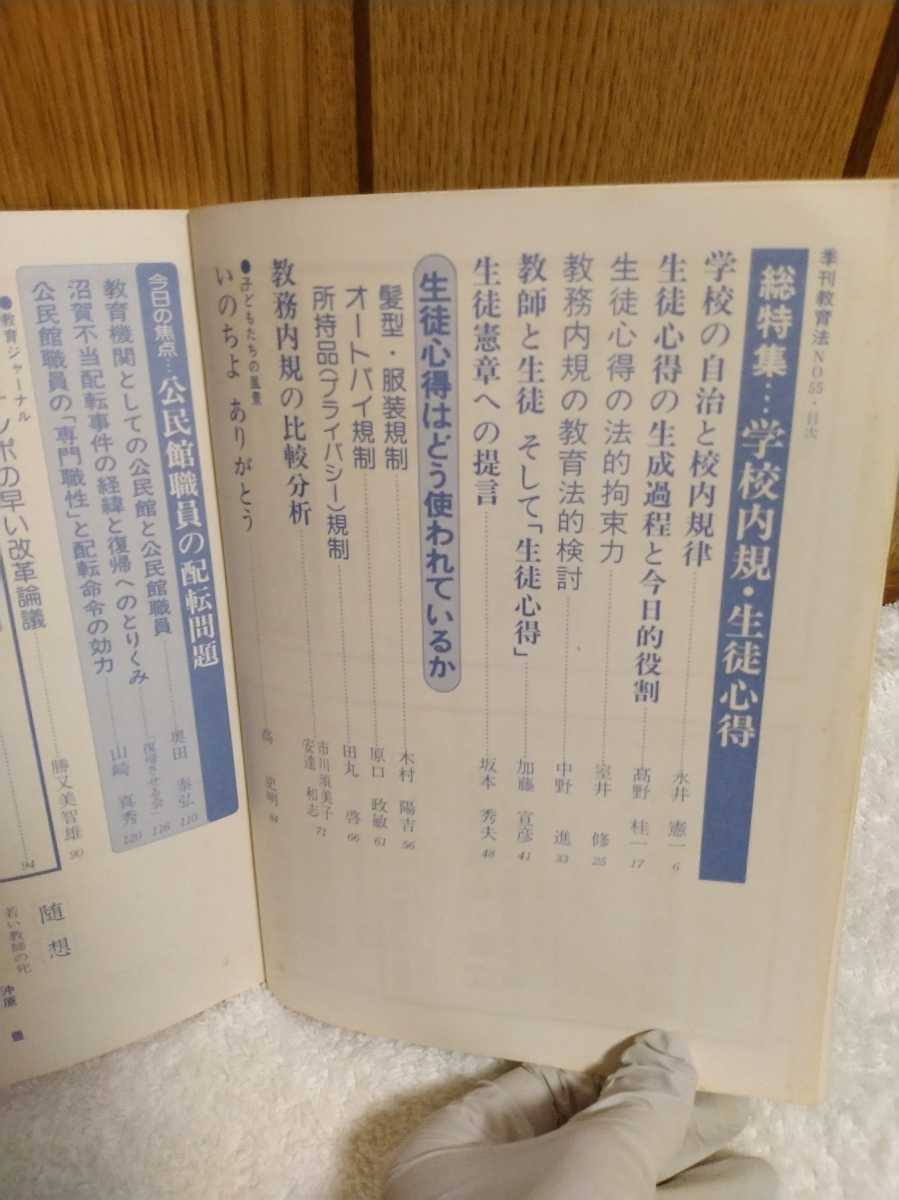 季刊教育法NO55・目次
総特集…学校内規・生徒心得
学校の自治と校内規律……永井 憲一 6
生徒心得の生成過程と今日的役割……髙野 桂一 17
生徒心得の法的拘束力……室井 修 25
教務内規の教育法的検討……中野 進 33
教師と生徒 そして「生徒心得」……加藤 宣彦 41
生徒憲章への提言……坂本 秀夫 48
生徒心得はどう使われているか
髪型・服装規制……木村 陽吉 56
オートバイ規制……原口 政敏 61
所持品(プライバシー)規制……田丸 啓 66
教務内規の比較分析……市川須美子 安達 和志 71
●子どもたちの風景
いのちよ ありがとう……高 史明 84
今日の焦点…公民館職員の配転問題
教育機関としての公民館と公民館職員……奥田 泰弘 110
沼賀不当配転事件の経緯と復帰へのとりくみ……「復帰させる会」 116
公民館職員の「専門職性」と配転命令の効力……山崎 真秀 120
●教育ジャーナル
ンポの早い改革論議……勝又美智雄 90
94
随想
若い教師の死 沖原 豊